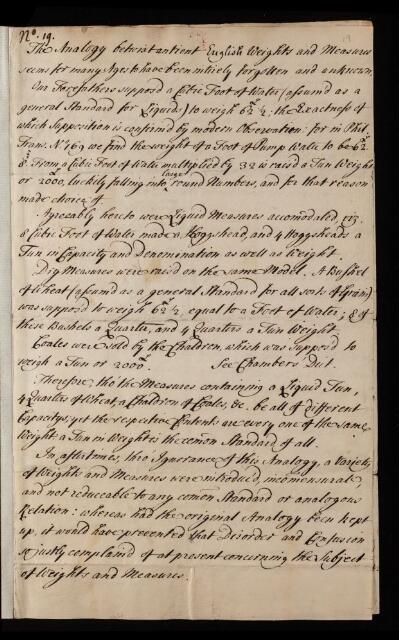 No. 19.
The Analogy betwixt antient English Weights and Measures
seems for many Ages to have been intirely forgotten and unknown.
Our Forefathers suppos'd a Cubic Foot of Water (assum'd as a
general Standard for Liquids) to weigh 62 ½; the Exactness of
which Supposition is confirm'd by modern Observation: for in Phil.
Trans. No. 169 we find the weight of a Foot of Pump Water to be 62
8. From a Cubic Foot of Water multiplied by 32 is rais'd a Tun Weight
or 2000, luckily falling into large round Numbers, and for that reason
made choice of.
Agreeably hereto were Liquid Measures accomodated, viz.
8 Cubic Feet of Water made a Hoggshead, and 4 Hoggsheads a
Tun in Capacity and Denomination as well as Weight.
Dry Measures were rais'd on the same Model. A Bushel
of Wheat (assum'd as a general Standard for all sorts of Grain)
was suppos'd to weigh 62 ½, equal to a Foot of Water; 8 of
these Bushels a Quarter, and 4 Quarters a Tun Weight.
Coales were sold by the Chaldren, which was suppos'd to
weigh a Tun or 2000. See Chambers Dict.
Therefore, tho' the Measures containing a Liquid Tun,
4 Quarters of Wheat, a Chaldren of Coales, &c. be all of different
Capacitys, yet the respective Contents are every one of the same
Weight a Tun in Weight is the comon Standard of all.
In aftertimes, thro' Ignorance of this Analogy, a Variety
of Weights and Measures were introduc'd, incomensurable
and not reduceable to any comon Standard or analogous
Relation: whereas had the original Analogy been kept
up, it would have prevented that Disorder and Confusion
so justly complain'd of at present concerning the Subject
of Weights and Measures.